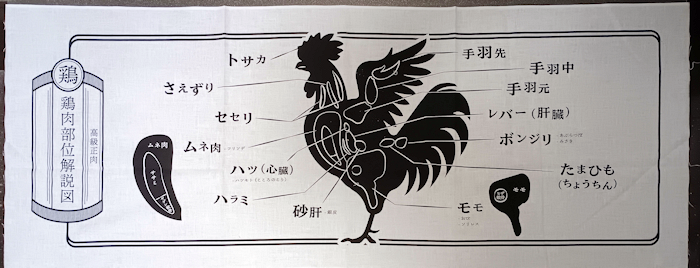 鶏
鶏肉部位解説図
高級正肉
トサカ
さえずり
セセリ
ムネ肉
ハツ(心臓)
ハラミ
砂肝
手羽先
手羽中
手羽元
レバー(肝臓)
ボンジリ
たまひも
(ちょうちん)
モモ
ムネ肉
ササミ
モモ